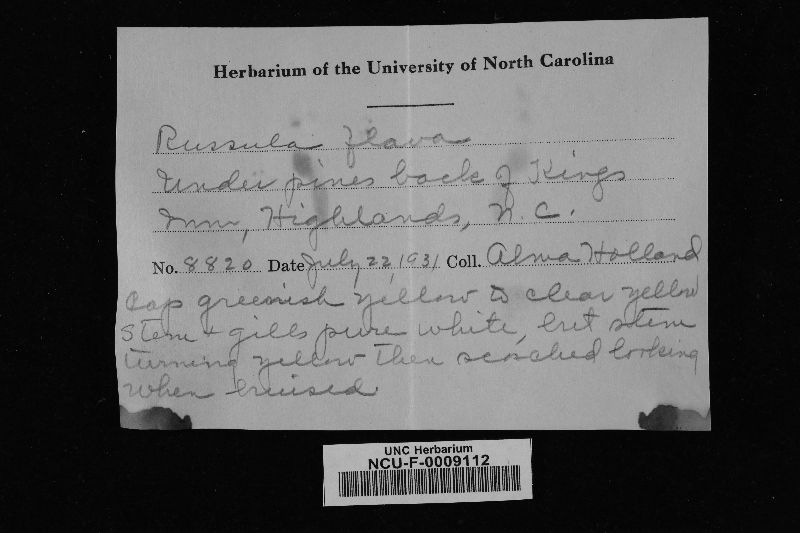 Herbarium of the University of North Carolina
Russula flava
Under pines back of Kings
Inn, Highlands, N.C.
No. 8820 Date July 22, 1931 Coll. Alma Holland
Cap greenish yellow to clear yellow
Stem + gills pure white, but stem
turning yellow then scorched looking
when bruised
UNC Herbarium
NCU-F-0009112